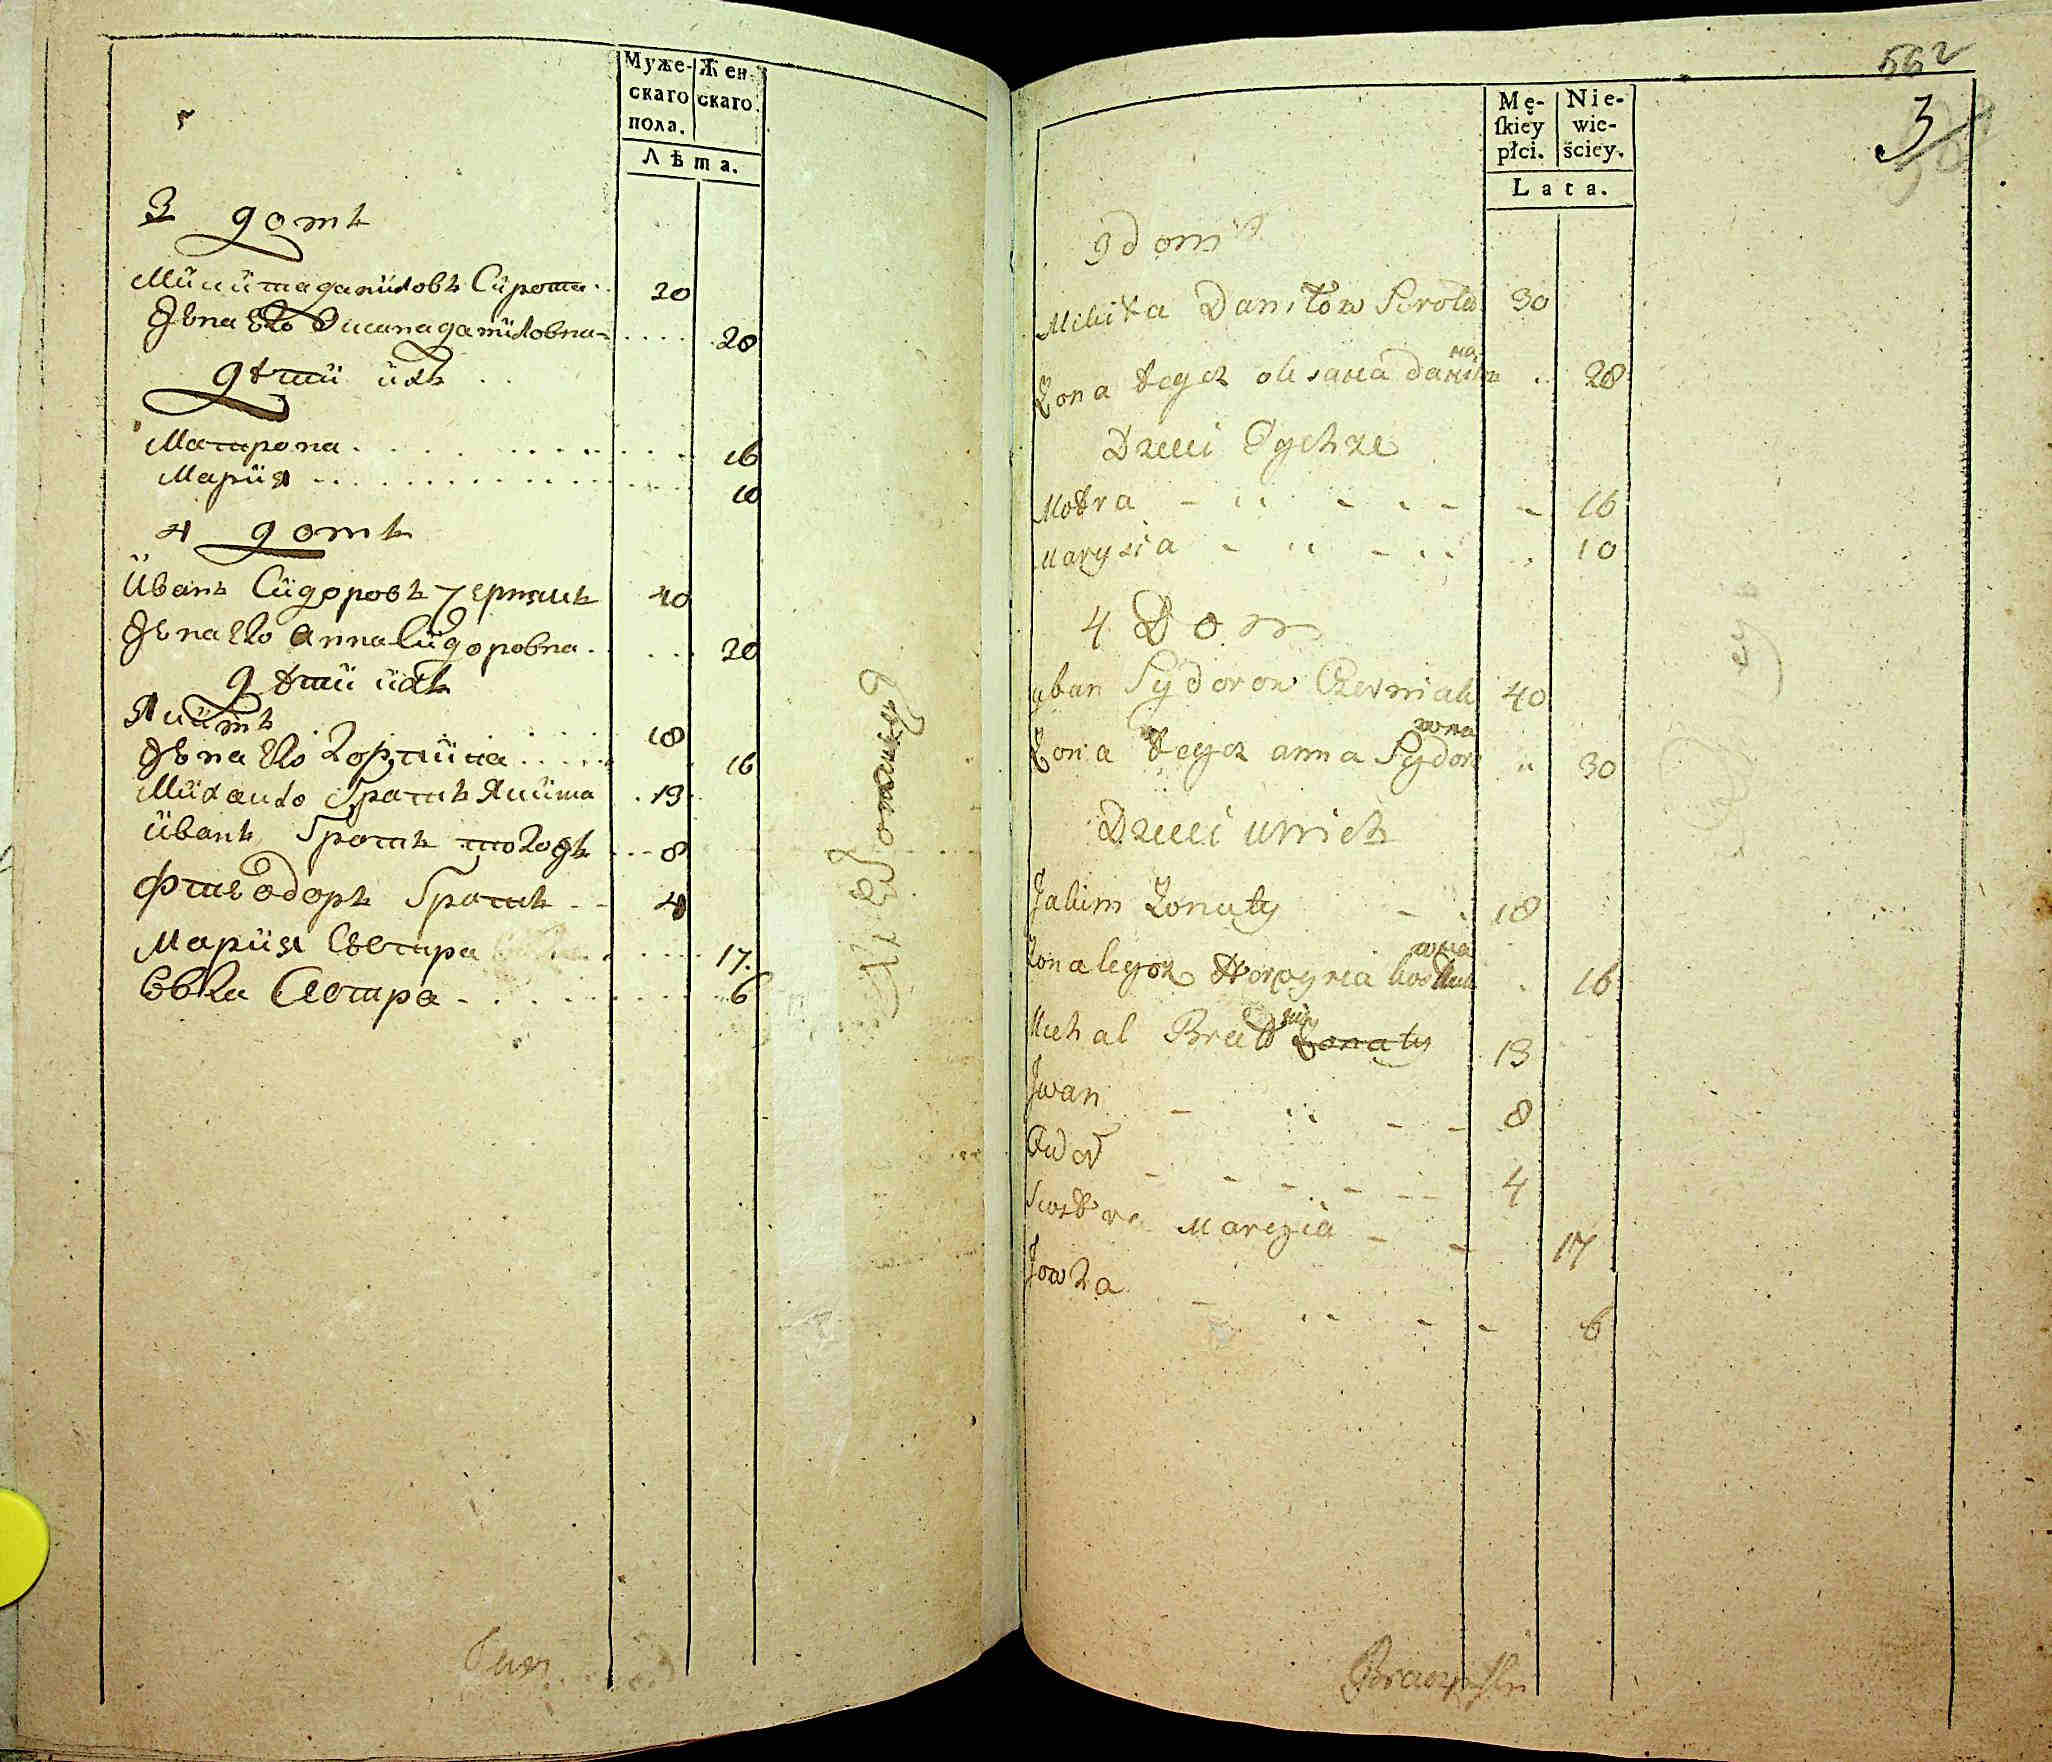 Муже-
скаго
пола.
Жен-
скаго
Лѣта.
3 домъ
Микита даниловъ Сирота 30
Жена Его Оксана даниловна 28
дѣти ихъ
Матрона 16
Мария 10
4 домъ
Иванъ Сидоровъ Чернякъ 40
Жена Его Анна Сидоровна 30
дѣти ихъ
Якимъ 18
Жена Его горпина 16
Михайло братъ Якима 13
Иванъ братъ тогожъ 8
Фтеодоръ братъ 4
Мария Сестра 17
Евка Сестра 6
562
3
Mę-
ſkiey
płci.
Nie-
wie-
ściey.
Lata.
3 dom
Mikita Daniłow Sirota 30
Żona tegoż oksana daniłowna 28
Dzieci Tychże
Motra 16
Marysia 10
4 Dom
yban Sydorow Czerniak 40
Żona tegoż anna Sydorowna 30
Dzieci unich
Jakim Żonaty 18
Żona Iegoż Horpyna 16
Michał Brat 13
Jwan 8
Fudor 4
Siostra Maryia 17
Jowka 6